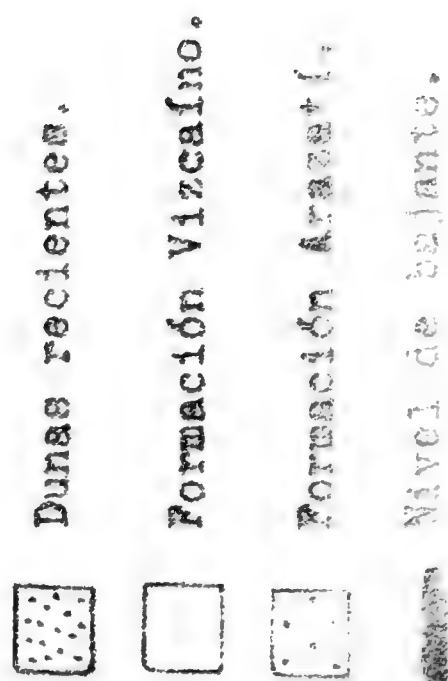 Dunas recientes.
Formación Vizcaíno.
Formación Arazatí.
Nivel de balante.